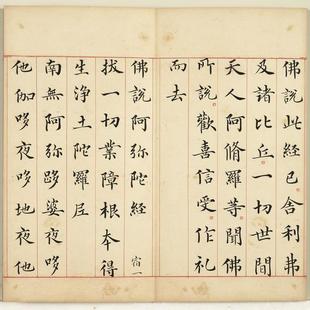 佛說此經已舍利弗
及諸比丘一切世間
天人阿脩羅等聞佛
所說歡喜信受作礼
而去
佛說阿弥陀經 宿一
拔一切業障根本得
生淨土陀羅尼
南無阿弥哆婆夜哆
他伽哆夜哆地夜他